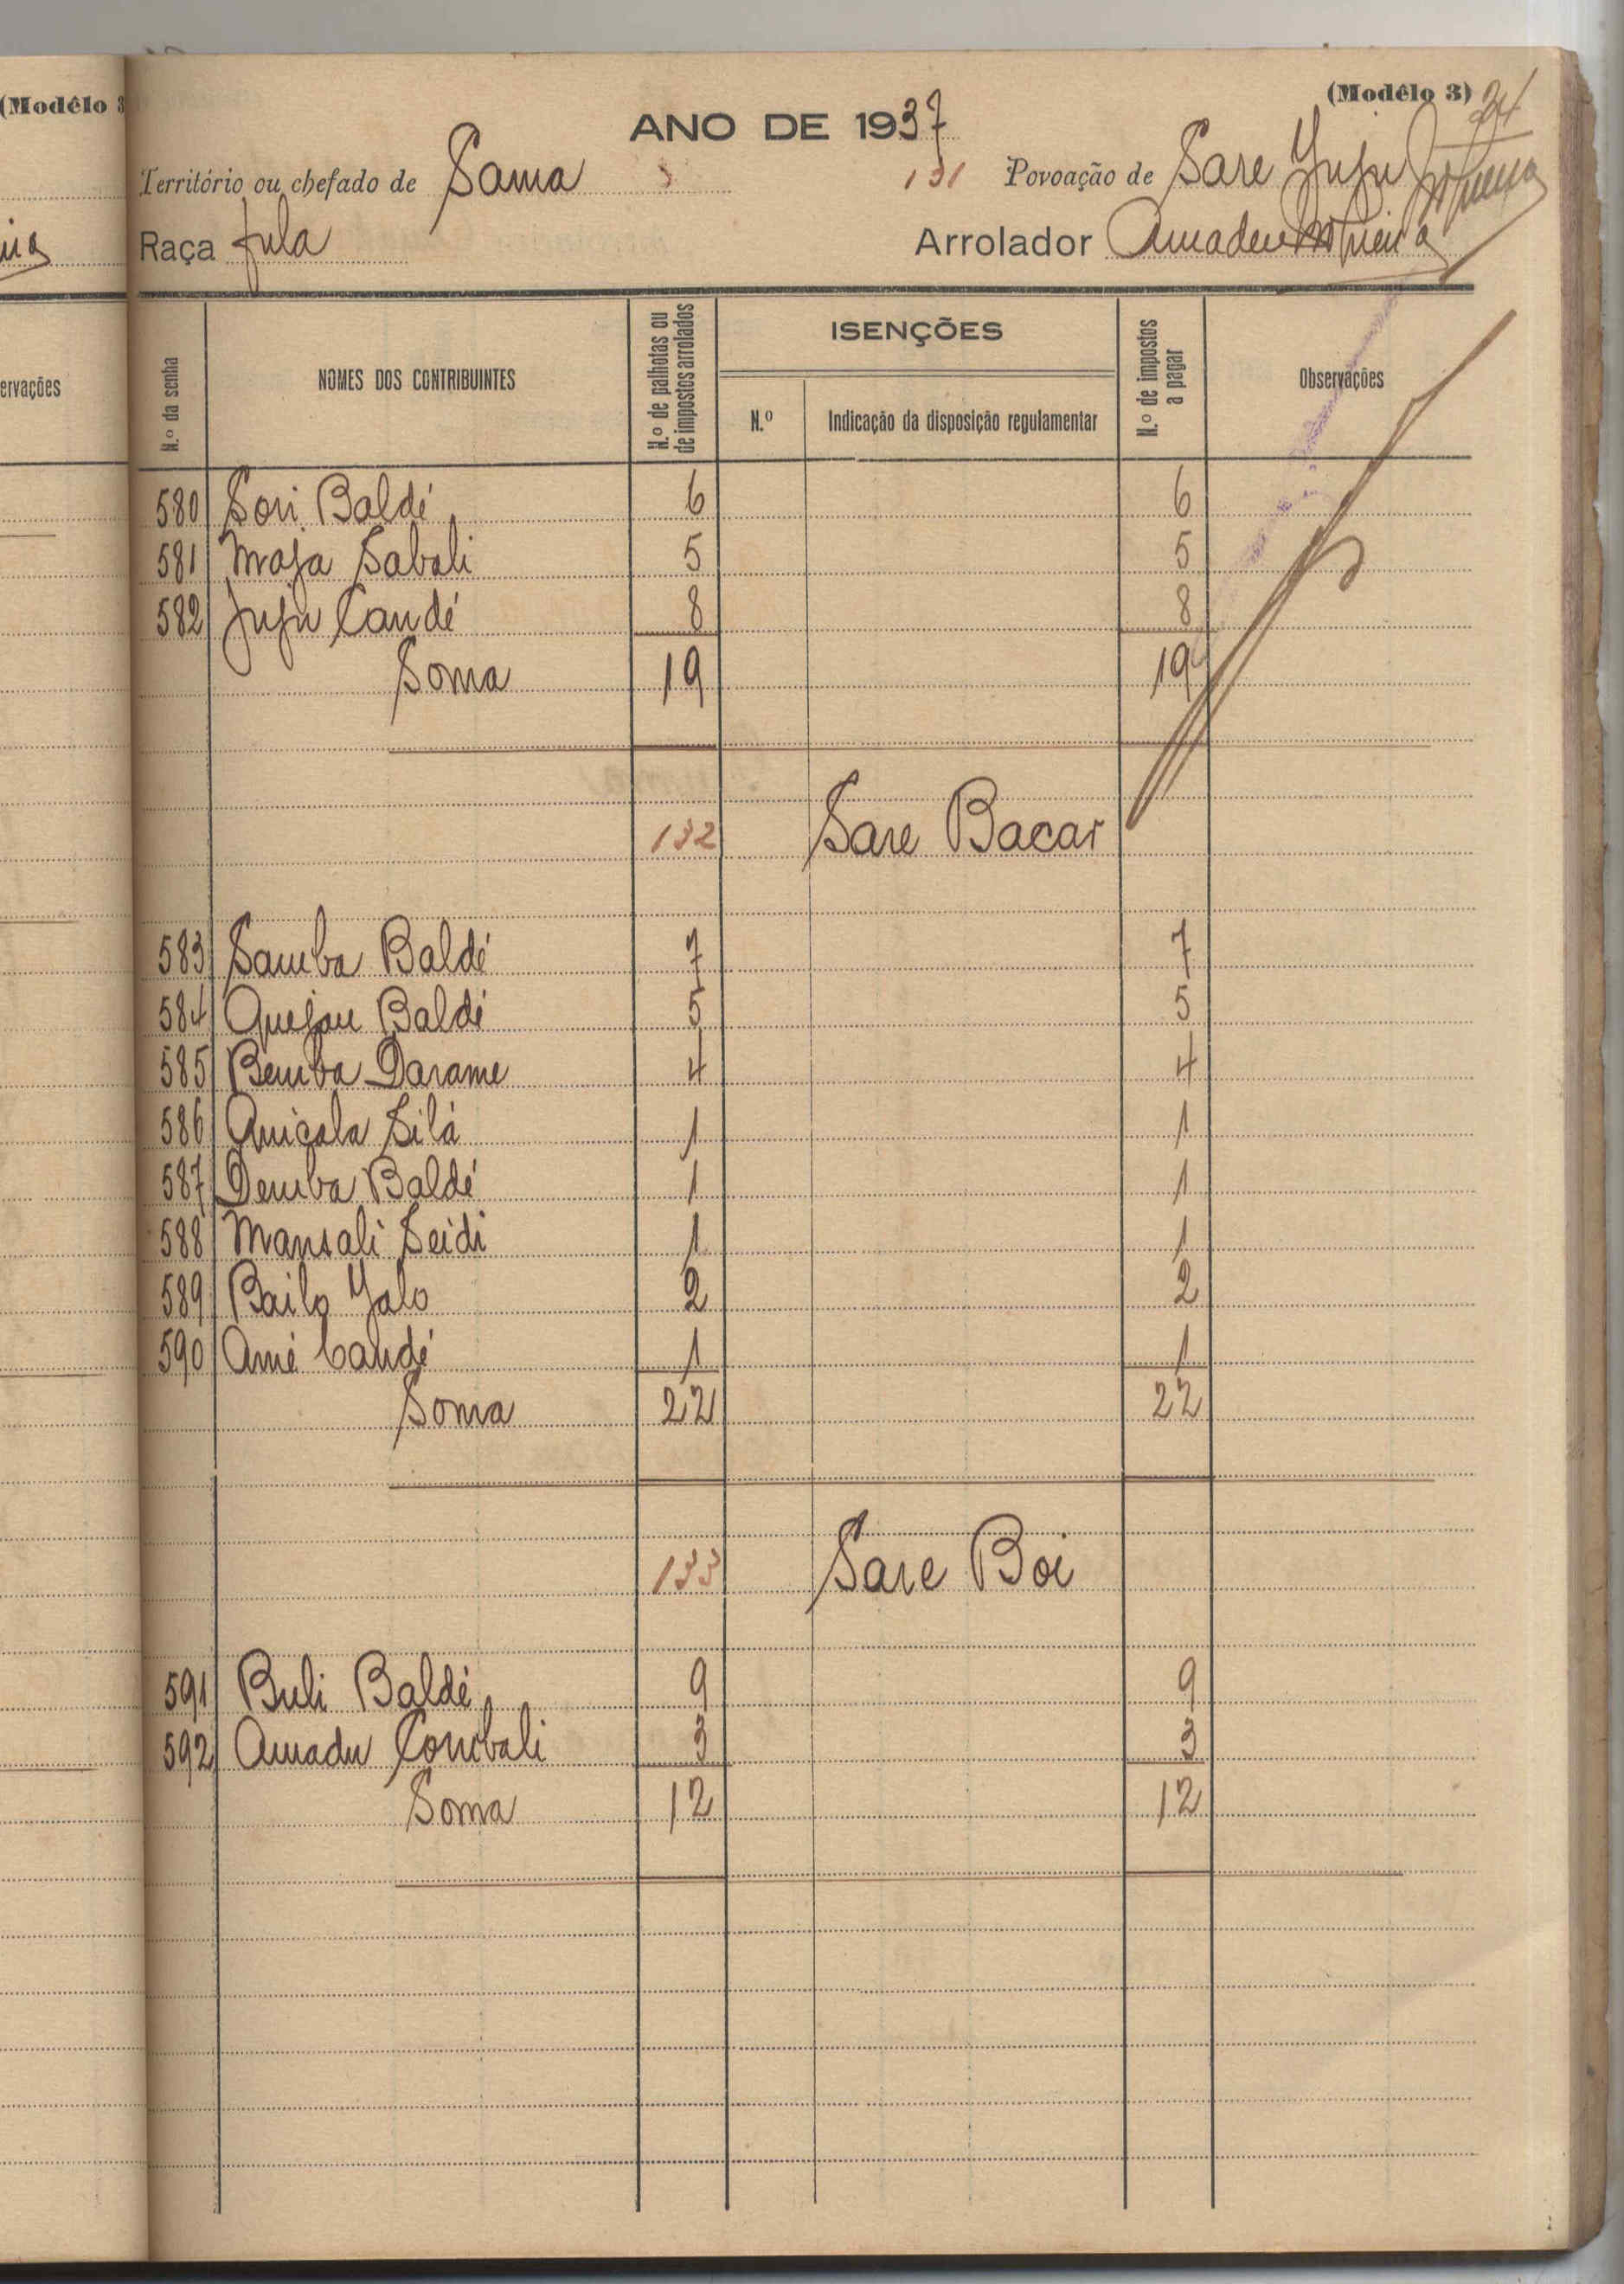 (Modêlo 3
ervações
(Modêlo 3) 24
ANO DE 1937
Território ou chefado de Sama 131 Povoação de Sare Juju
Raça Fula Arrolador Amadeu Nogueira
N.º da senha NOMES DOS CONTRIBUINTES N.º de palhotas ou de impostos arrolados ISENÇÕES N.º de impostos a pagar Observações
N.º Indicação da disposição regulamentar
580 Sori Baldé 6 6
581 Maja Sabali 5 5
582 Juju Candé 8 8
Soma 19 19
132 Sare Bacar
583 Samba Baldé 7 7
584 Quejau Baldé 5 5
585 Bemba Darame 4 4
586 Silá 1 1
587 Demba Baldé 1 1
588 Mansali Seidi 1 1
589 Bailo Jalo 2 2
590 Amé Candé 1 1
Soma 22 22
133 Sare Boi
591 Buli Baldé 9 9
592 Amadu Combali 3 3
Soma 12 12